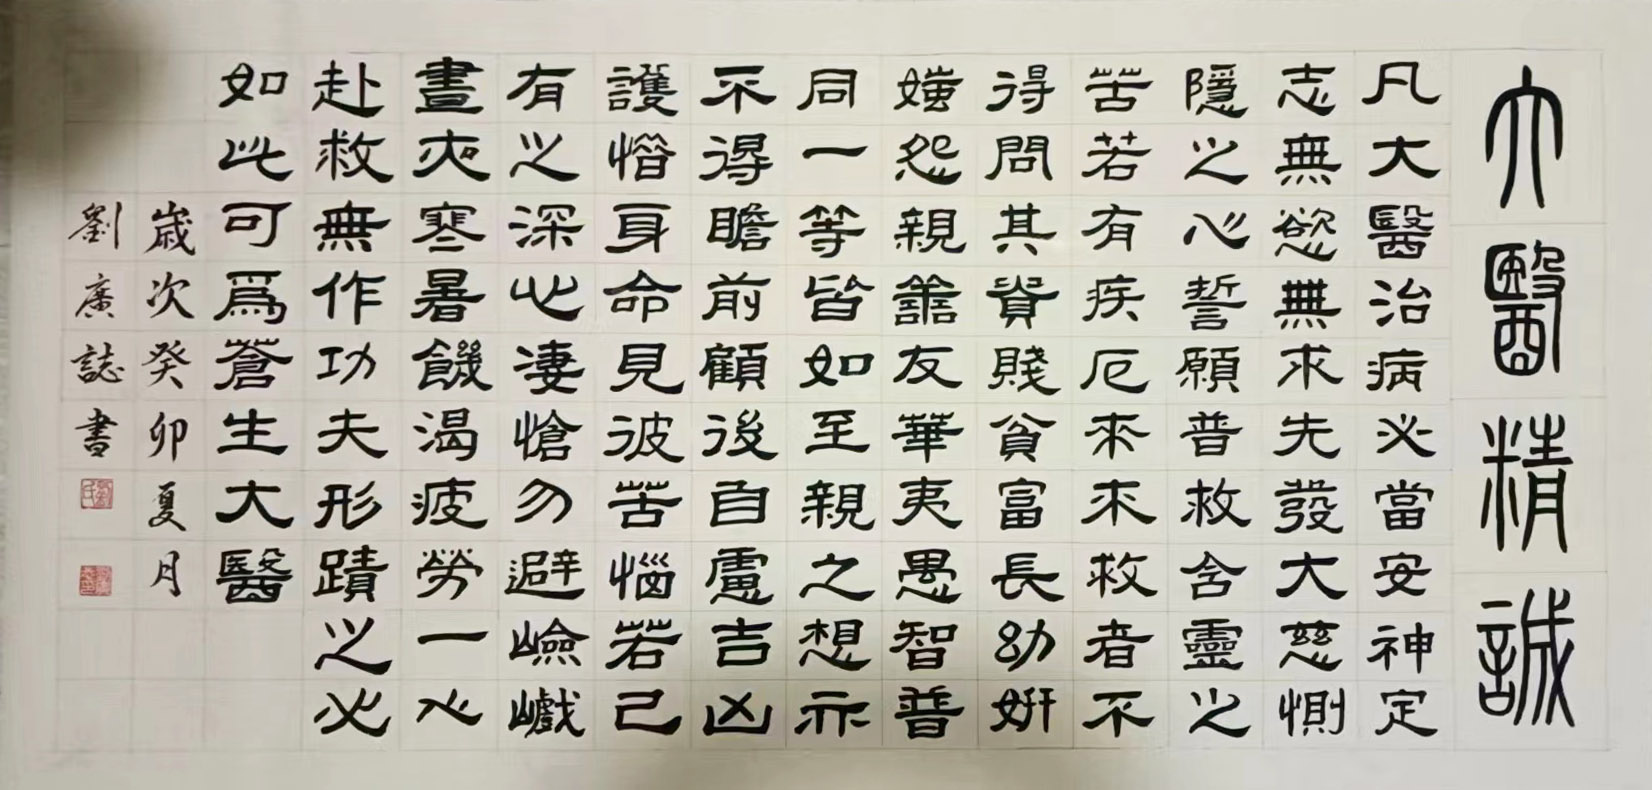 大醫精誠
凡大醫治病必當安神定
志無慾無求先發大慈惻
隱之心誓願普救含靈之
苦若有疾厄來求救者不
得問其貴賤貧富長幼妍
媸怨親譱友華夷愚智普
同一等皆如至親之想亦
不得瞻前顧後自慮吉凶
護惜身命見彼苦惱若己
有之深心凄愴勿避嶮巇
晝夜寒暑饑渴疲勞一心
赴救無作功夫形蹟之心
如此可爲蒼生大醫
歲次癸卯夏月
劉廣誌書